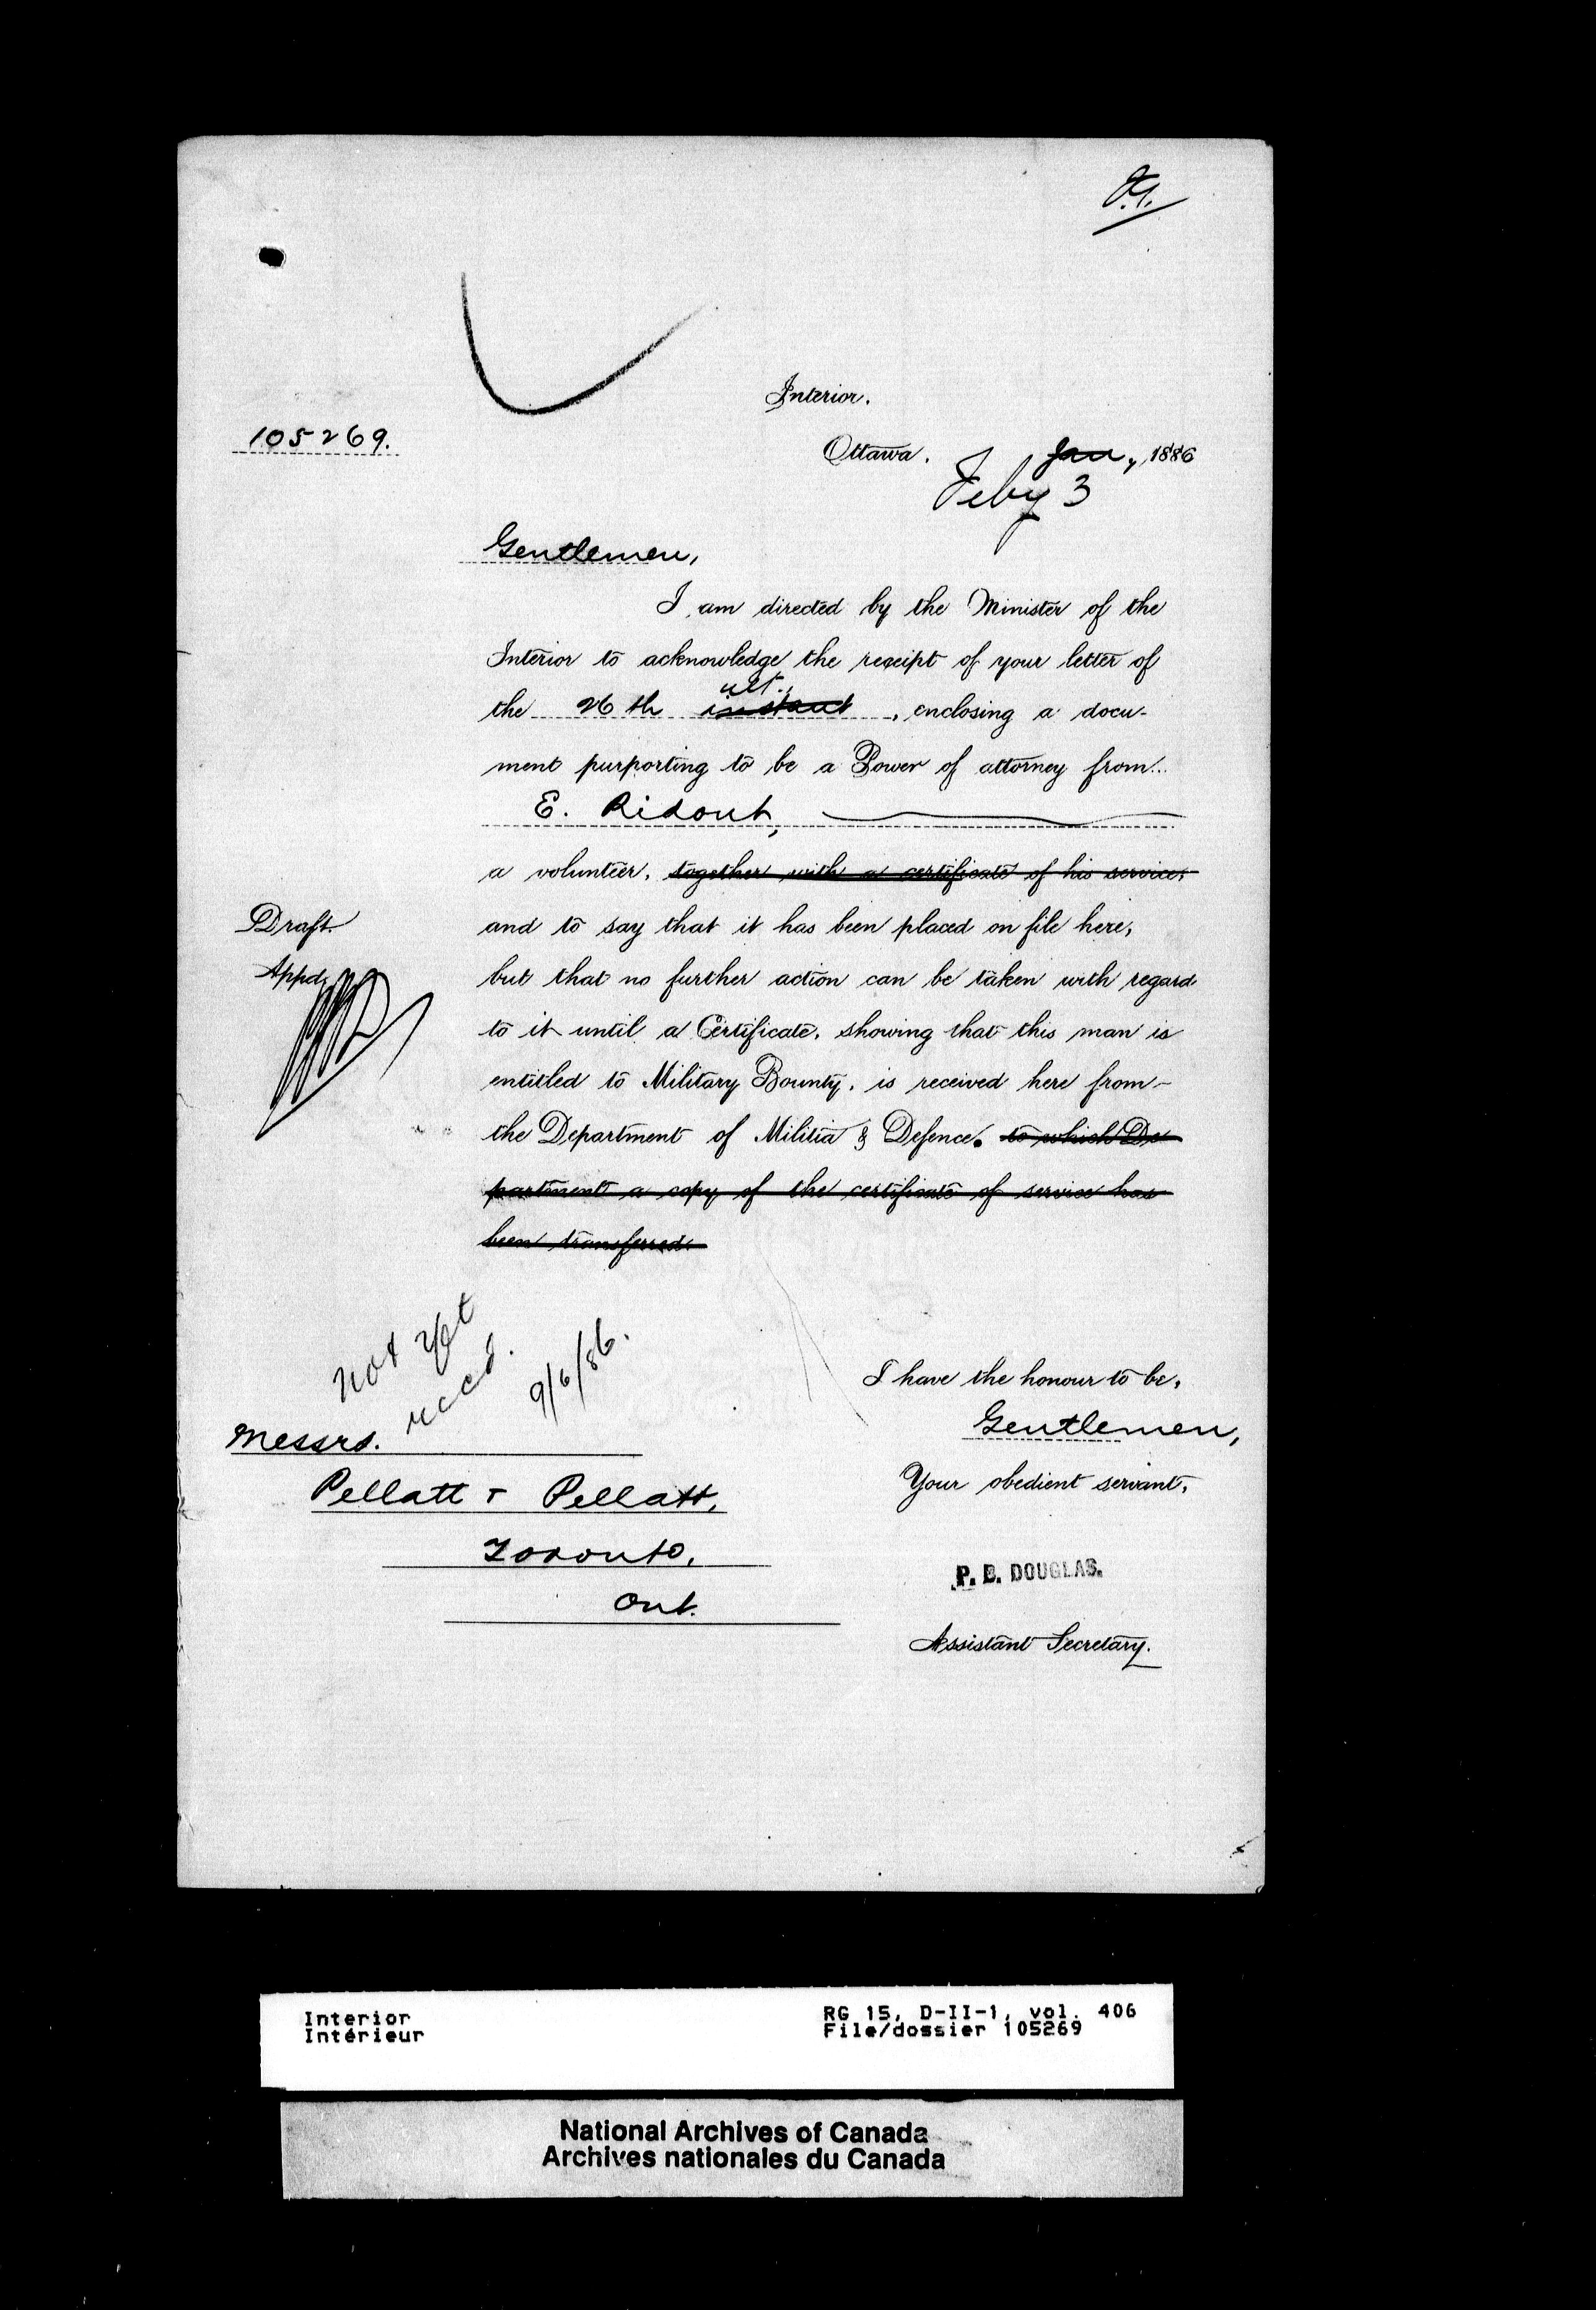 Interior.
105269.
Ottawa. Jan, 1886
Feby 3
Gentlemen,
I am directed by the Minister of the
Interior to acknowledge the receipt of your letter of
ult.,
the 26th instant, enclosing a docu-
ment purporting to be a Power of attorney from
E. Ridout,
a volunteer, together with a certificate of his service,
Draft
and to say that it has been placed on file here,
Appd,
but that no further action can be taken with regard
to it until a Certificate, showing that this man is
entitled to Military Bounty, is received here from
the Department of Militia & Defence. to which De
partment a copy of the certificate of service has
been transferred.
not yet
recd.
9/6/86.
I have the honour to be,
Gentlemen,
Your obedient servant,
Messrs.
Pellatt & Pellatt,
Toronto,
Ont.
P. B. DOUGLAS.
Assistant Secretary.
Interior RG 15, D-II-1, vol. 406
Intérieur File/dossier 105269
National Archives of Canada
Archives nationales du Canada